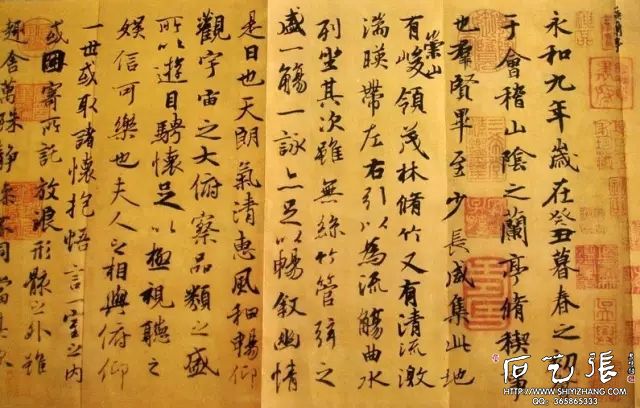 永和九年歲在癸丑暮春之初
于會稽山陰之蘭亭脩稧事
也羣賢畢至少長咸集此地
有崇山峻領茂林脩竹又有清流激
湍暎帶左右引以為流觴曲水
列坐其次雖無絲竹管弦之
盛一觴一詠亦足以暢敘幽情
是日也天朗氣清惠風和暢仰
觀宇宙之大俯察品類之盛
所以遊目騁懷足以極視聽之
娛信可樂也夫人之相與俯仰
一世或取諸懷抱悟言一室之內
或因寄所託放浪形骸之外雖
趣舍萬殊靜躁不同當其
石艺張
WWW.SHIYIZHANG.COM
QQ: 365865333